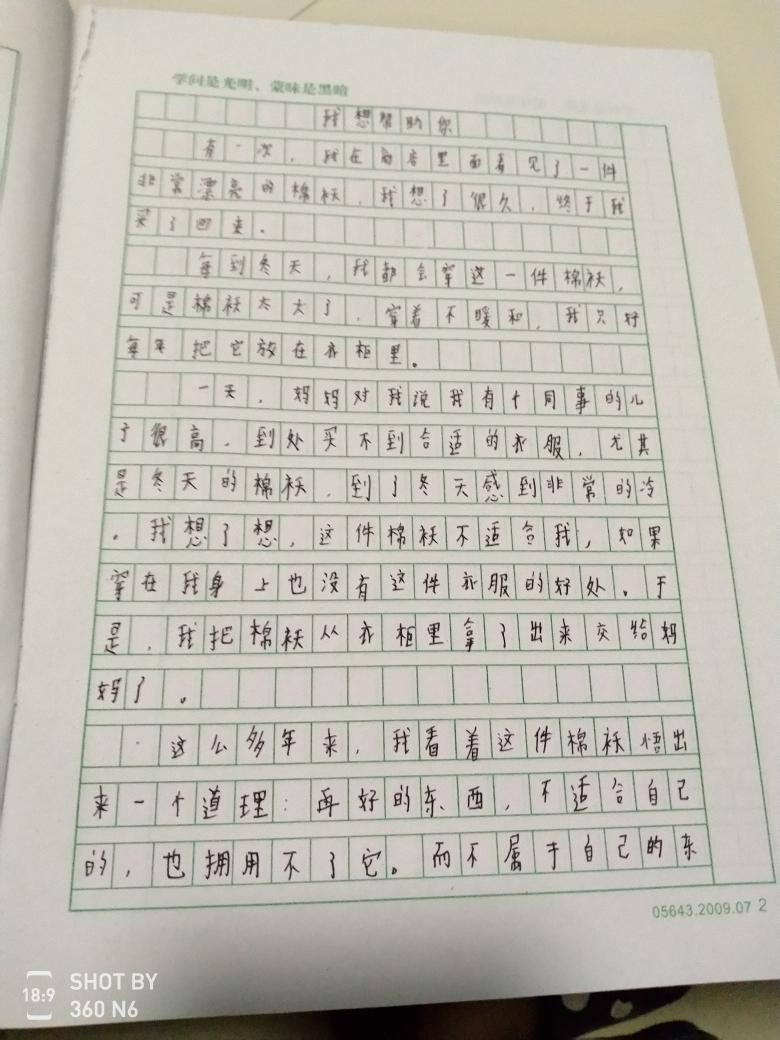 学问是光明、蒙昧是黑暗
我想帮助你
有一次，我在商店里面看见了一件
非常漂亮的棉袄，我想了很久，终于我
买了回来。
每到冬天，我都会穿这一件棉袄，
可是棉袄太大了，穿着不暖和，我只好
每年把它放在衣柜里。
一天，妈妈对我说我有个同事的儿
子很高，到处买不到合适的衣服，尤其
是冬天的棉袄，到了冬天感到非常的冷
。我想了想，这件棉袄不适合我，如果
穿在我身上也没有这件衣服的好处。于
是，我把棉袄从衣柜里拿了出来交给妈
妈了。
这么多年来，我看着这件棉袄悟出
来一个道理：再好的东西，不适合自己
的，也拥用不了它。而不属于自己的东
05643.2009.07 2
18:9
SHOT BY
360 N6